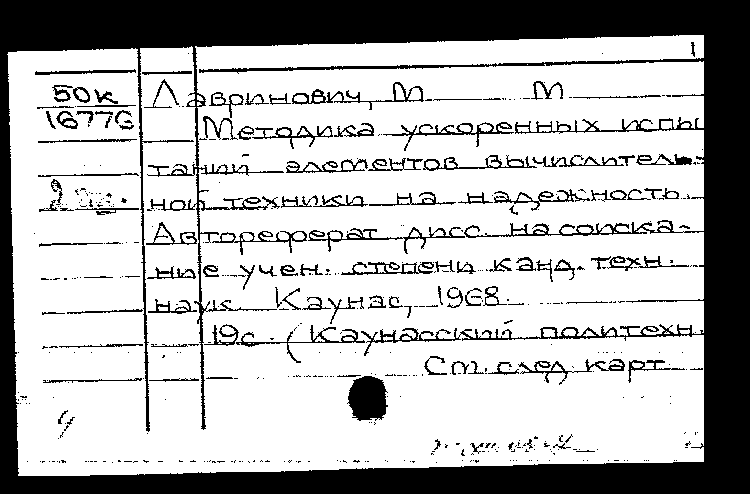 1
50к Лавринович, М М
16776 Методика ускоренных испы
таний элементов вычислитель-
2 экз. ной техники на надежность.
Автореферат дисс. на соиска-
ние учен. степени канд. техн.
наук. Каунас, 1968.
19с. (Каунасский политехн.
См. след карт